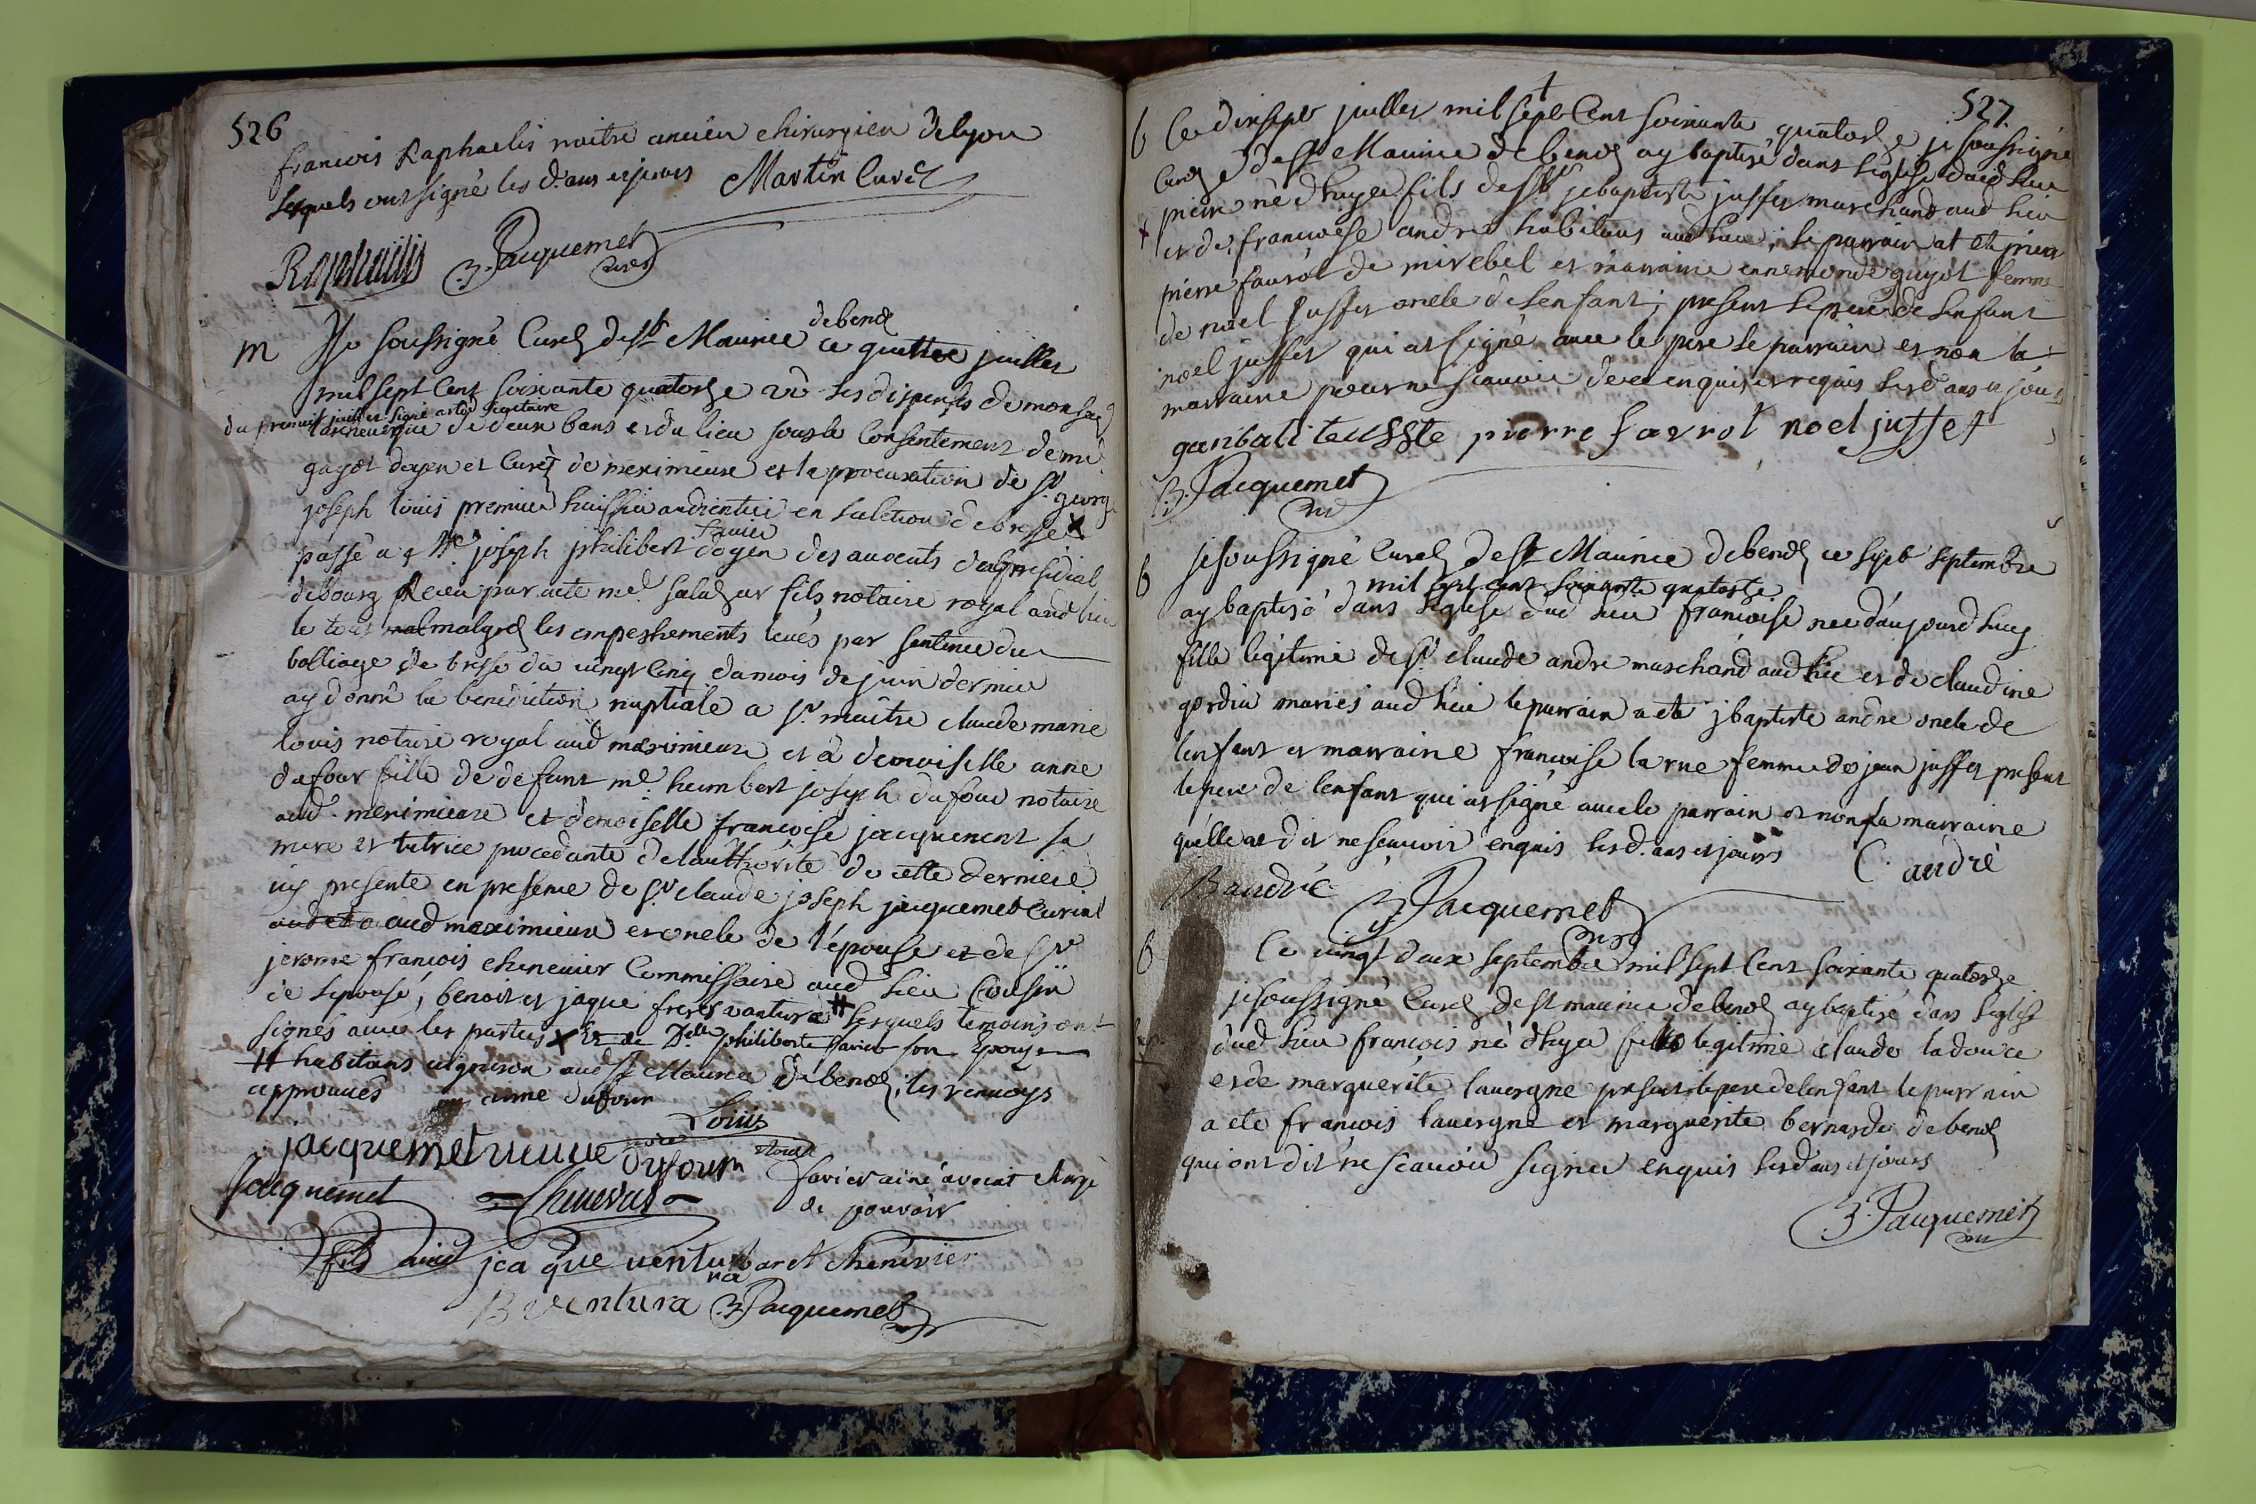 526
francois Raphaelis maitre ancien chirurgien de lyon
lesquels ont signé les d. ans et jours Martin Curé
Raphaelis B. Jacquemet
curé
m Je soussigné Curé de St Maurice de beno ce quattre juillet
mil sept Cent soixante quatorze vu les dispenses de monseig
du premier juillet signé et secretaire
larcheveque de deux bans et du lieu sous le Consentement de mr
gayot doyen et Curé de meximieux et la procuration de Sr george
joseph louis premier huissier audiencier en lelection de bresse X
passé a Me joseph philibert favier doyen des avocats du presidial
de bourg Receu par acte me salazar fils notaire royal aud lieu
le tout malgré les empeshements levés par sentence du
balliage de bresse du vingt Cinq du mois de juin dernier
ay donné la benediction nuptiale a Sr maitre claude marie
louis notaire royal aud meximieux et a demoiselle anne
dufour fille de defunt me humbert joseph dufour notaire
aud. meximieux et demoiselle francoise jacquemet sa
mere et tutrice procedante de lauthorité de cette derniere
icy presente en presence de Sr claude joseph jacquemet Curial
aud meximieux et oncle de l'épouse et de Sr
jerome francois chenevier Commissaire aud lieu Cousin
de lepouse, benoit et jaque freres vantura # lesquels temoins ont
signés avec les parties X et de Dlle philiberte favier son Epouse
# habitans vigneron aud St Maurice de beno, les renvoys
approuvés anne dufour
Louis
jacquemet veuve Dufour
Jacquemet Chenevier favier ainé avocat chargé
de pouvoir
fils ainé jea que ventu baret Chenevier
ra
B ventura B Jacquemet
527
b Ce dixsept juillet mil sept Cent soixante quatorze je soussigné
Curé de St Maurice de beno ay baptisé dans leglise dud lieu
pierre né d'huyer fils de Sr j baptiste juffet marchand aud lieu
et de francoise andre habitans aud lieu, le parrain at eté pierre
pierre favrot de mirebel et marraine ennemonde guyot femme
de noel juffet oncle de lenfant, present le pere de lenfant
noel juffet qui at signé avec le pere le parrain et non la
marraine pour ne scavoir de ce enquis et requis les d ans et jours
pierre favrot noel juffet
B. Jacquemet
curé
b je soussigné Curé de St Maurice de beno ce sept septembre
mil sept cent soixante quatorze
ay baptisé dans leglise dud lieu francoise neé daujourdhuy
fille legitime de Sr claude andre marchand aud lieu et de claudine
gordin mariés aud lieu le parrain a eté j baptiste andre oncle de
lenfant et marraine francoise larue femme de jean juffet present
le pere de lenfant qui at signé avec le parrain et non la marraine
quelle at dit ne scavoir enquis les d. ans et jours C. andrè
B andrie B Jacquemet
curé
b Ce vingt deux septembre mil sept Cent soixante quatorze
je soussigné Curé de St maurice de beno ay baptisé dans leglise
dud lieu francois né d'huyer fils legitime claude ladouce
et de marguerite lauergne present le pere de lenfant le parrain
a eté francois lauergne et marguerite bernarde de beno
qui ont dit ne scavoir signer enquis les d ans et jours
B. Jacquemet
curé